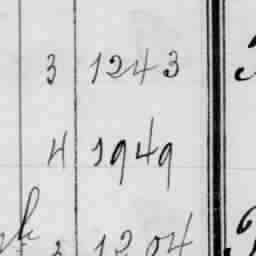 3 1243
4 1949
3 1204